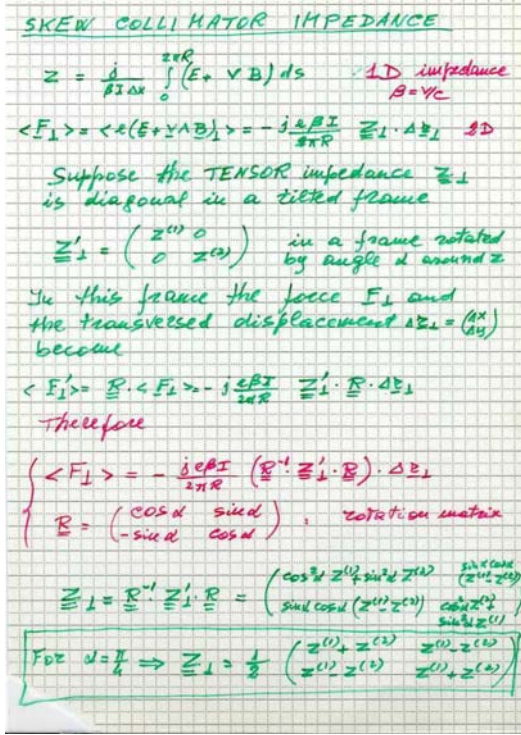 SKEW COLLIMATOR IMPEDANCE
Z = j/(βIΔx) ∫₀^{2πR} (E + VB) ds 1D impedance
β = v/c
<F⊥> = <e(E+V∧B)⊥> = -j eβI/2πR Z⊥ · Δr⊥ 2D
Suppose the TENSOR impedance Z⊥
is diagonal in a tilted frame
Z'⊥ = ( Z⁽¹⁾ 0 ; 0 Z⁽²⁾ ) in a frame rotated
by angle α around z
In this frame the force F⊥ and
the transversed displacement Δr⊥ = (Δx ; Δy)
become
<F'⊥> = R · <F⊥> = -j eβI/2πR Z'⊥ · R · Δr⊥
Therefore
<F⊥> = - jeβI/2πR (R⁻¹ · Z'⊥ · R) · Δr⊥
R = ( cosα sinα ; -sinα cosα ) : rotation matrix
Z⊥ = R⁻¹ · Z'⊥ · R = ( cos²α Z⁽¹⁾ + sin²α Z⁽²⁾ sinα cosα (Z⁽¹⁾ - Z⁽²⁾) ; sinα cosα (Z⁽¹⁾ - Z⁽²⁾) cos²α Z⁽²⁾ + sin²α Z⁽¹⁾ )
For α = π/4 ⇒ Z⊥ = 1/2 ( Z⁽¹⁾ + Z⁽²⁾ Z⁽¹⁾ - Z⁽²⁾ ; Z⁽¹⁾ - Z⁽²⁾ Z⁽¹⁾ + Z⁽²⁾ )